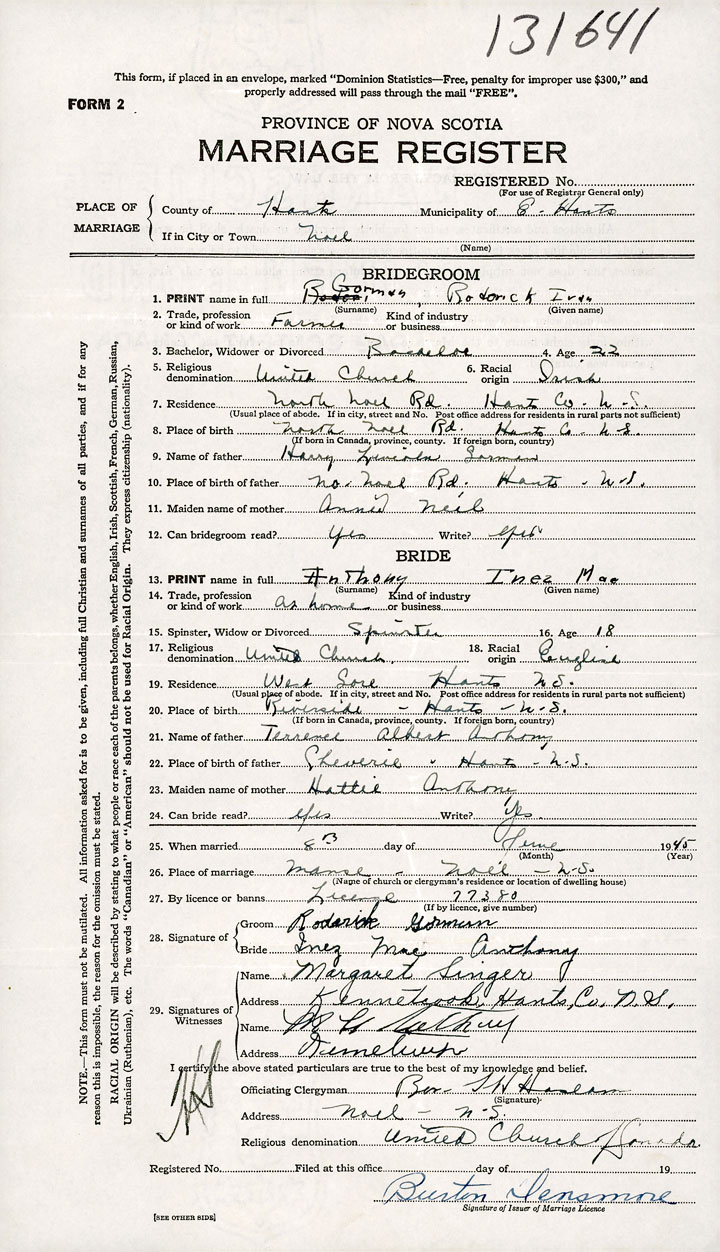 131641
This form, if placed in an envelope, marked "Dominion Statistics—Free, penalty for improper use $300," and
properly addressed will pass through the mail "FREE".
FORM 2
PROVINCE OF NOVA SCOTIA
MARRIAGE REGISTER
REGISTERED No.
(For use of Registrar General only)
PLACE OF MARRIAGE
County of Hants Municipality of E. Hants
If in City or Town Noel
(Name)
BRIDEGROOM
1. PRINT name in full Gorman, Roderick Ivan
(Surname) (Given name)
2. Trade, profession or kind of work Farmer Kind of industry or business
3. Bachelor, Widower or Divorced Bachelor 4. Age 22
5. Religious denomination United Church 6. Racial origin Irish
7. Residence North Noel Rd. Hants Co. N.S.
(Usual place of abode. If in city, street and No. Post office address for residents in rural parts not sufficient)
8. Place of birth North Noel Rd. Hants Co. N.S.
(If born in Canada, province, county. If foreign born, country)
9. Name of father Harry Lincoln Gorman
10. Place of birth of father No. Noel Rd. Hants - N.S.
11. Maiden name of mother Annie Neil
12. Can bridegroom read? Yes Write? Yes
BRIDE
13. PRINT name in full Anthony Inez Mae
(Surname) (Given name)
14. Trade, profession or kind of work at home Kind of industry or business
15. Spinster, Widow or Divorced Spinster 16. Age 18
17. Religious denomination United Church. 18. Racial origin English
19. Residence West Gore Hants N.S.
(Usual place of abode. If in city, street and No. Post office address for residents in rural parts not sufficient)
20. Place of birth Riverside - Hants - N.S.
(If born in Canada, province, county. If foreign born, country)
21. Name of father Terrence Albert Anthony
22. Place of birth of father Cheverie - Hants - N.S.
23. Maiden name of mother Hattie Anthony
24. Can bride read? Yes Write? Yes.
25. When married 8th day of June 1945
(Month) (Year)
26. Place of marriage Manse - Noel - N.S.
(Name of church or clergyman's residence or location of dwelling house)
27. By licence or banns License 77380
(If by licence, give number)
28. Signature of
Groom Roderick Gorman
Bride Inez Mae Anthony
29. Signatures of Witnesses
Name Margaret Singer
Address Kennetcook, Hants, Co. N.S.
Name
Address
I certify the above stated particulars are true to the best of my knowledge and belief.
Officiating Clergyman Rev.
(Signature)
Address Noel - N.S.
Religious denomination United Church of Canada
Registered No. Filed at this office day of 19
Burton Densmore
Signature of Issuer of Marriage Licence
[SEE OTHER SIDE]
NOTE.—This form must not be mutilated. All information asked for is to be given, including full Christian and surnames of all parties, and if for any
reason this is impossible, the reason for the omission must be stated.
RACIAL ORIGIN will be described by stating to what people or race each of the parents belongs, whether English, Irish, Scottish, French, German, Russian,
Ukrainian (Ruthenian), etc. The words "Canadian" or "American" should not be used for Racial Origin. They express citizenship (nationality).